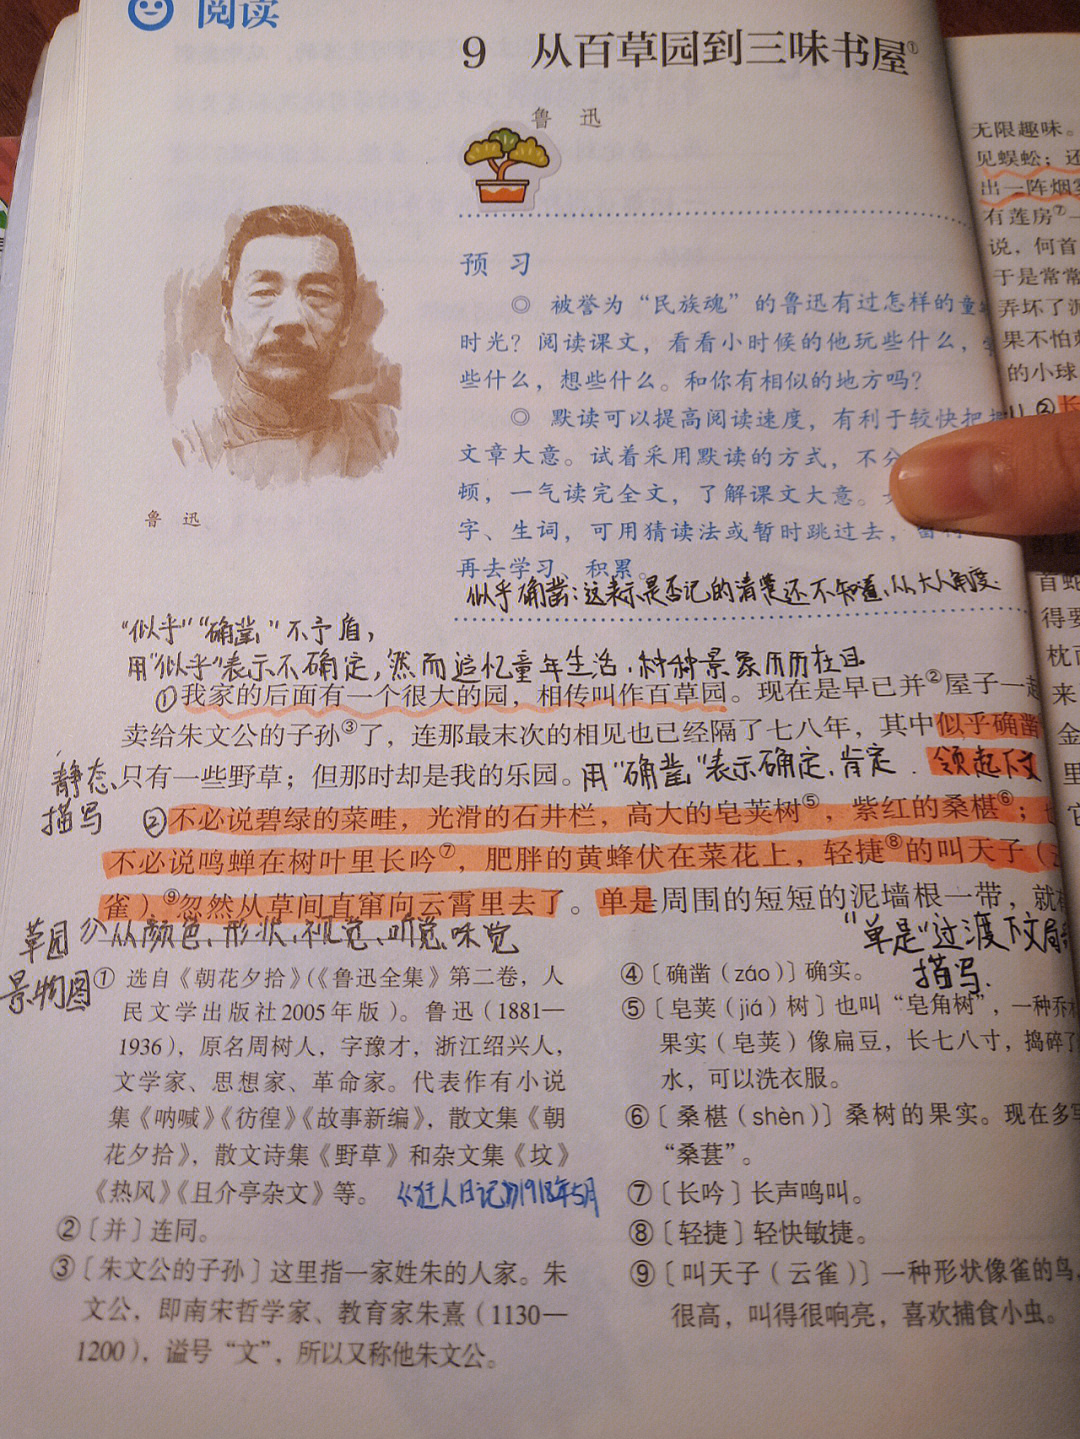 阅读
9 从百草园到三味书屋①
鲁 迅
鲁 迅
预 习
◎ 被誉为“民族魂”的鲁迅有过怎样的童
时光？阅读课文，看看小时候的他玩些什么，
些什么，想些什么。和你有相似的地方吗？
◎ 默读可以提高阅读速度，有利于较快把
文章大意。试着采用默读的方式，不分
顿，一气读完全文，了解课文大意。
字、生词，可用猜读法或暂时跳过去，
再去学习、积累。
似乎确凿：这表示是否记的清楚还不知道，从大人角度.
“似乎”“确凿”不矛盾，
用“似乎”表示不确定，然而追忆童年生活，种种景象历历在目
①我家的后面有一个很大的园，相传叫作百草园。现在是早已并②屋子一起
卖给朱文公的子孙③了，连那最末次的相见也已经隔了七八年，其中似乎确凿
只有一些野草；但那时却是我的乐园。用“确凿”表示确定，肯定．领起下文
静态
描写
②不必说碧绿的菜畦，光滑的石井栏，高大的皂荚树⑤，紫红的桑椹⑥；也
不必说鸣蝉在树叶里长吟⑦，肥胖的黄蜂伏在菜花上，轻捷⑧的叫天子（云
雀）⑨忽然从草间直窜向云霄里去了。单是周围的短短的泥墙根一带，就
草园
景物图
从颜色、形状、视觉、听觉、味觉
“单是”过渡下文局
描写.
① 选自《朝花夕拾》（《鲁迅全集》第二卷，人
民文学出版社2005年版）。鲁迅（1881—
1936），原名周树人，字豫才，浙江绍兴人，
文学家、思想家、革命家。代表作有小说
集《呐喊》《彷徨》《故事新编》，散文集《朝
花夕拾》，散文诗集《野草》和杂文集《坟》
《热风》《且介亭杂文》等。《狂人日记》1918年5月
②〔并〕连同。
③〔朱文公的子孙〕这里指一家姓朱的人家。朱
文公，即南宋哲学家、教育家朱熹（1130—
1200），谥号“文”，所以又称他朱文公。
④〔确凿（záo）〕确实。
⑤〔皂荚（jiá）树〕也叫“皂角树”，一种乔
果实（皂荚）像扁豆，长七八寸，捣碎了
水，可以洗衣服。
⑥〔桑椹（shèn）〕桑树的果实。现在多写
“桑葚”。
⑦〔长吟〕长声鸣叫。
⑧〔轻捷〕轻快敏捷。
⑨〔叫天子（云雀）〕一种形状像雀的鸟，
很高，叫得很响亮，喜欢捕食小虫。
无限趣味。
见蜈蚣；还
出一阵烟
有莲房⑦
说，何首
于是常常
弄坏了
果不怕
的小球
②长
首
得要
枕
来
金
里